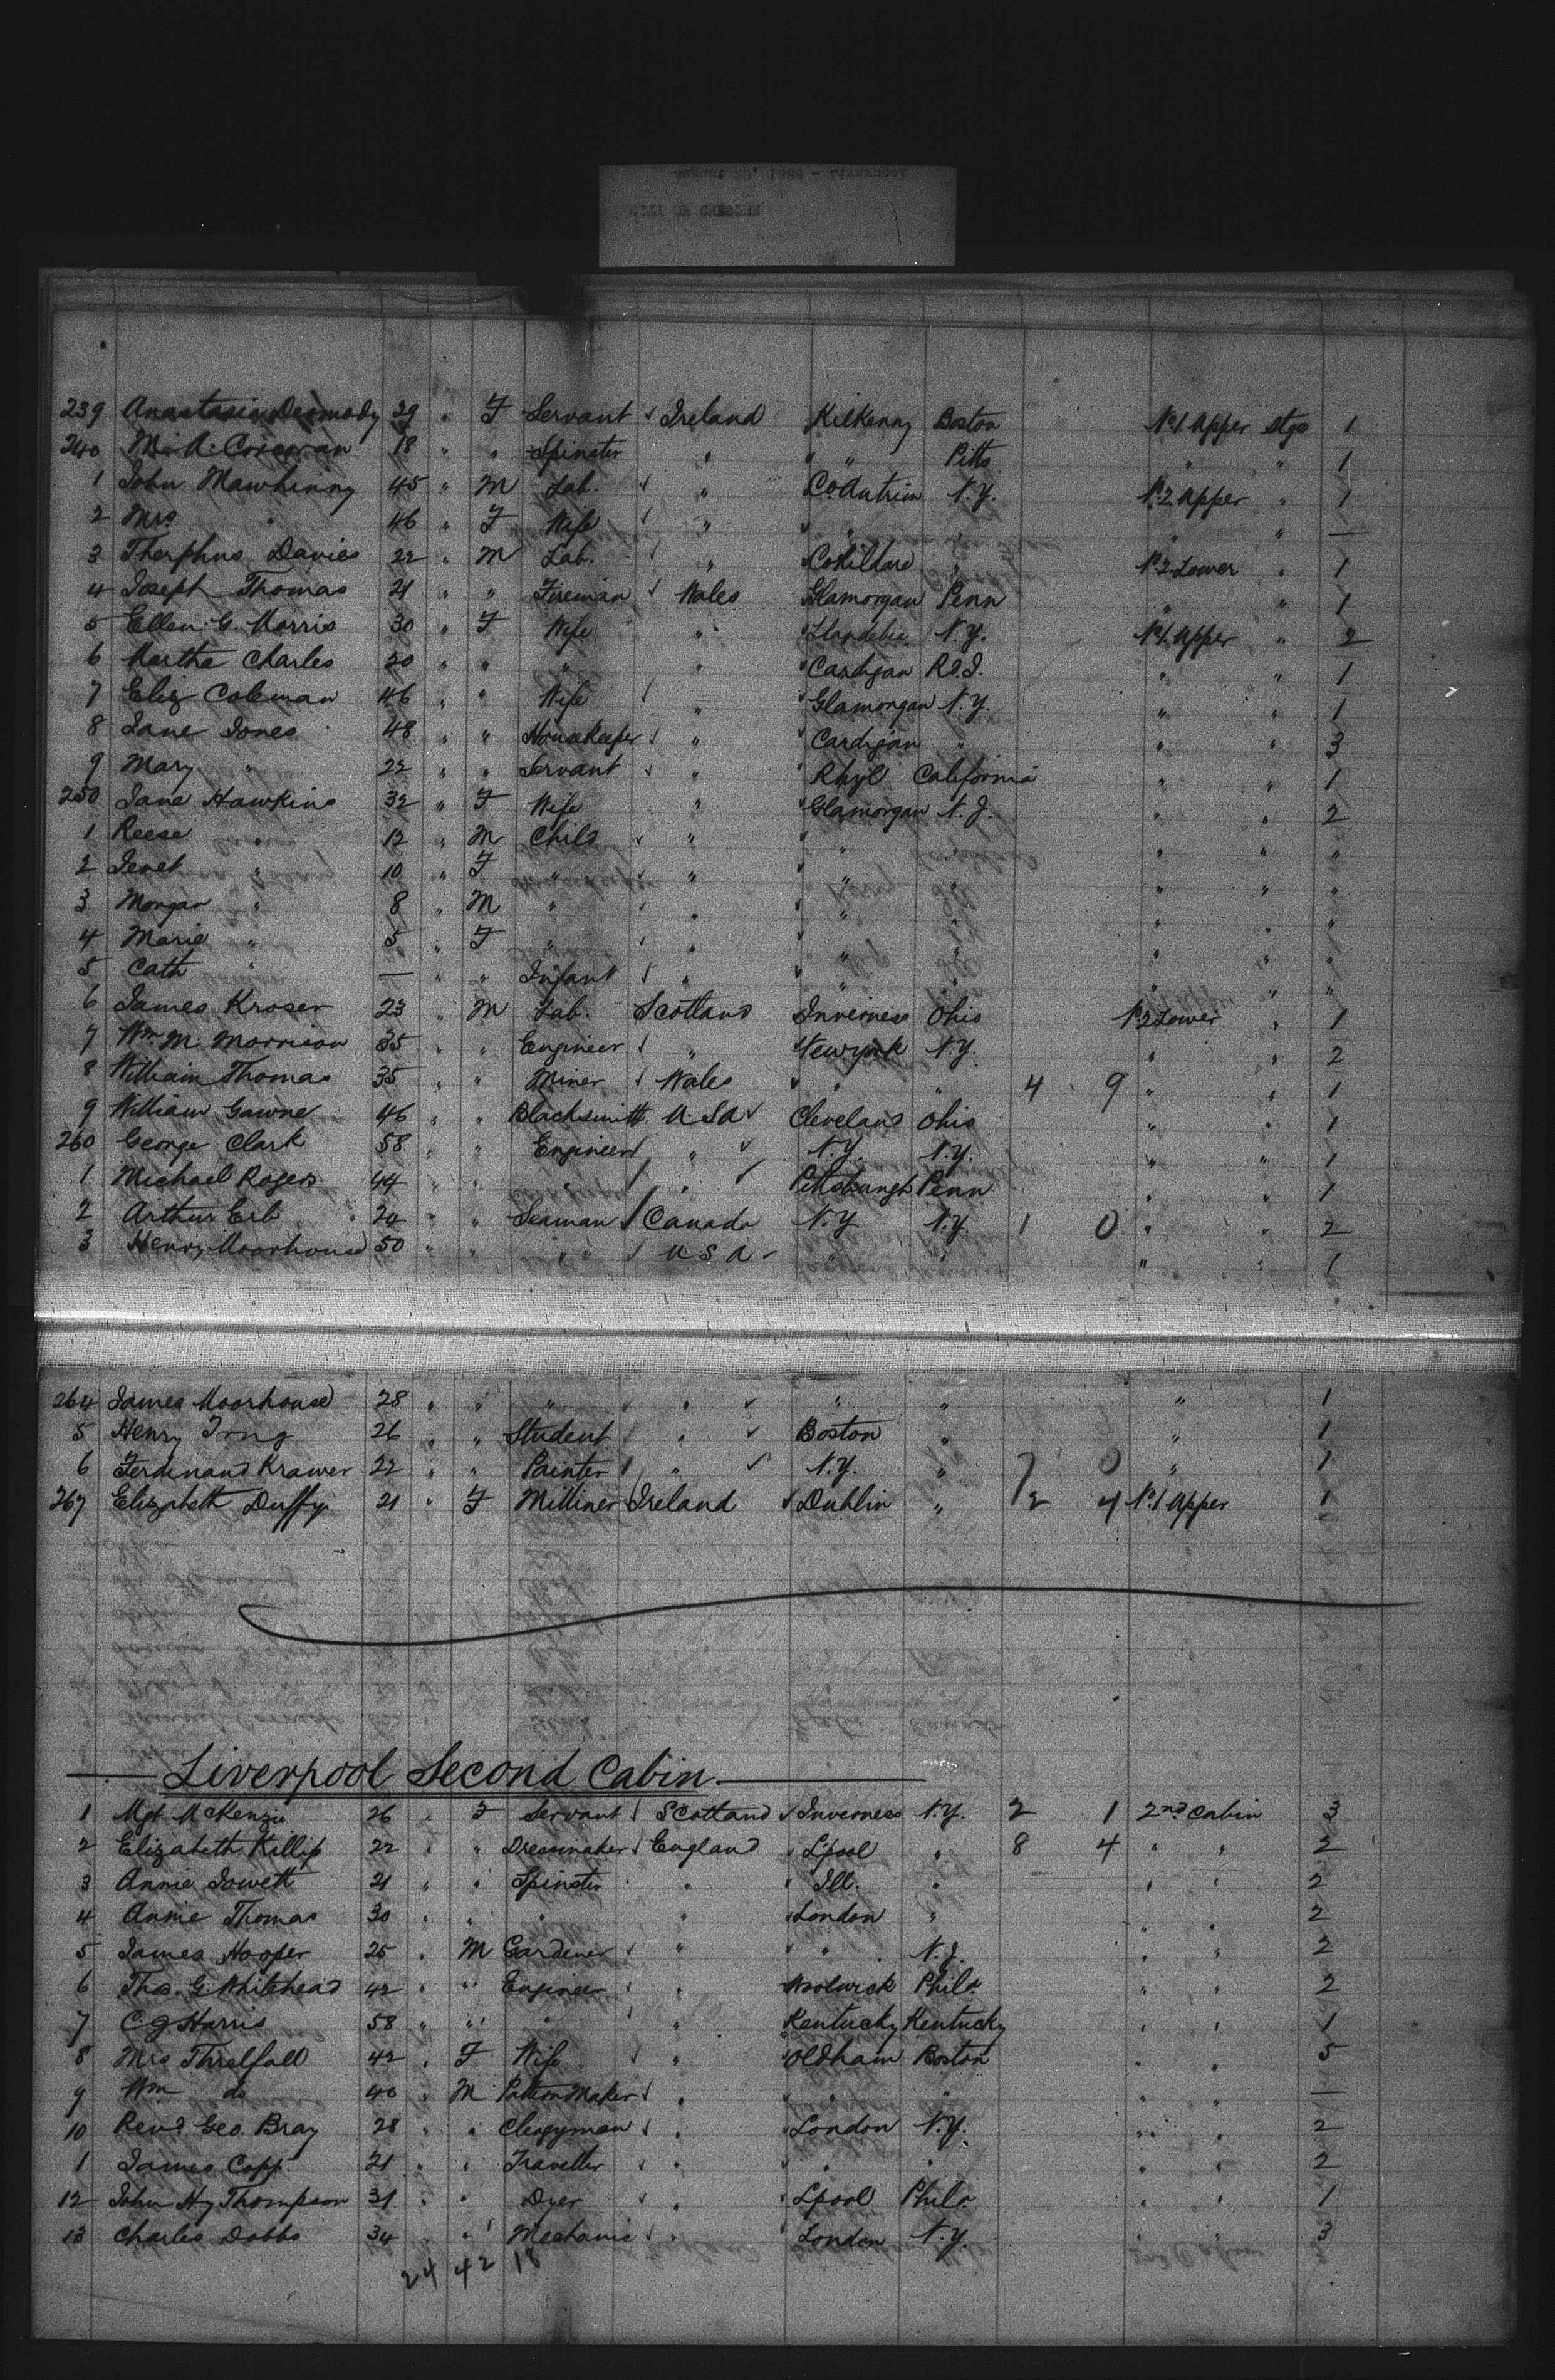 239 Anastasia Dermody 29 " F Servant ✓ Ireland Kilkenny Boston No 1 Upper Stge 1
240 M. A. Corcoran 18 " " Spinster " " " Pitts " " 1
1 John Mawhinny 45 " M Lab. ✓ " Co Antrim N.Y. No 2 Upper " 1
2 Mrs " 46 " F Wife ✓ " " " " " —
3 Davies 22 " M Lab. " Co Kildare " No 2 Lower " 1
4 Joseph Thomas 21 " " Fireman ✓ Wales Glamorgan Penn " " 1
5 Ellen G. Morris 30 " F Wife " N.Y. No 1 Upper " 2
6 Martha Charles 20 " " " " Cardigan R.I. " " 1
7 Eliz Coleman 46 " " Wife ✓ " Glamorgan N.Y. " " 1
8 Jane Jones 48 " " Housekeeper ✓ " Cardigan " " " 3
9 Mary " 22 " " Servant ✓ " Rhyl California " " 1
250 Jane Hawkins 32 " F Wife " Glamorgan N.J. " " 2
1 Reese " 12 " M Child ✓ " " " " " "
2 Jenet " 10 " F " ✓ " " " " " "
3 Morgan " 8 " M " ✓ " " " " " "
4 Marie " 5 " F " ✓ " " " " " "
5 Cath " — " " Infant ✓ " " " " " "
6 James Kroser 23 " M Lab. Scotland Inverness Ohio No 2 Lower " 1
7 Wm M. Morrison 35 " " Engineer ✓ " Newyork N.Y. " " 2
8 William Thomas 35 " " Miner ✓ Wales " " 4 9 " " 1
9 William Gawne 46 " " Blacksmith U.S.A ✓ Cleveland Ohio " " 1
260 George Clark 58 " " Engineer ✓ " ✓ N.Y. N.Y. " " 1
1 Michael Rogers 44 " " " ✓ " ✓ Pittsburgh Penn " " 1
2 Arthur Erb 24 " " Seaman ✓ Canada N.Y. N.Y. 1 0 " " 2
3 Henry Moorhouse 50 " " " " ✓ U S A ✓ " " " " 1
264 James Moorhouse 28 " " " " ✓ " " " 1
5 Henry 26 " " Student " ✓ Boston " " 1
6 Ferdinand Kramer 22 " " Painter ✓ " ✓ N.Y. " 7 0 " 1
267 Elizabeth Duffy 21 " F Milliner Ireland ✓ Dublin " 2 4 No 1 Upper 1
Liverpool Second Cabin
1 Mgt. McKenzie 26 " F Servant ✓ Scotland ✓ Inverness N.Y. 2 1 2nd Cabin 3
2 Elizabeth Killip 22 " " Dressmaker ✓ England L'pool " 8 4 " " 2
3 Annie Jowett 21 " " Spinster " Ill. " " " 2
4 Annie Thomas 30 " " " " London " " " 2
5 James Hooper 25 " M Gardener ✓ " " N.J. " " 2
6 Thos. G. Whitehead 42 " " Engineer " Woolwick Phila. " " 2
7 C G Harris 58 " " " " Kentucky Kentucky " " 1
8 Mrs Threlfall 42 " F Wife ✓ " Oldham Boston " " 5
9 Wm do 40 " M Pattern Maker ✓ " " " " —
10 Revd Geo. Bray 28 " " Clergyman ✓ " London N.Y. " " 2
1 James Copp 21 " " Traveller ✓ " " " " " 2
12 John Hy Thompson 31 " " Dyer ✓ " L'pool Phila. " " 1
13 Charles Dobbs 34 " " Mechanic ✓ " London N.Y. " " 3
24 42 18